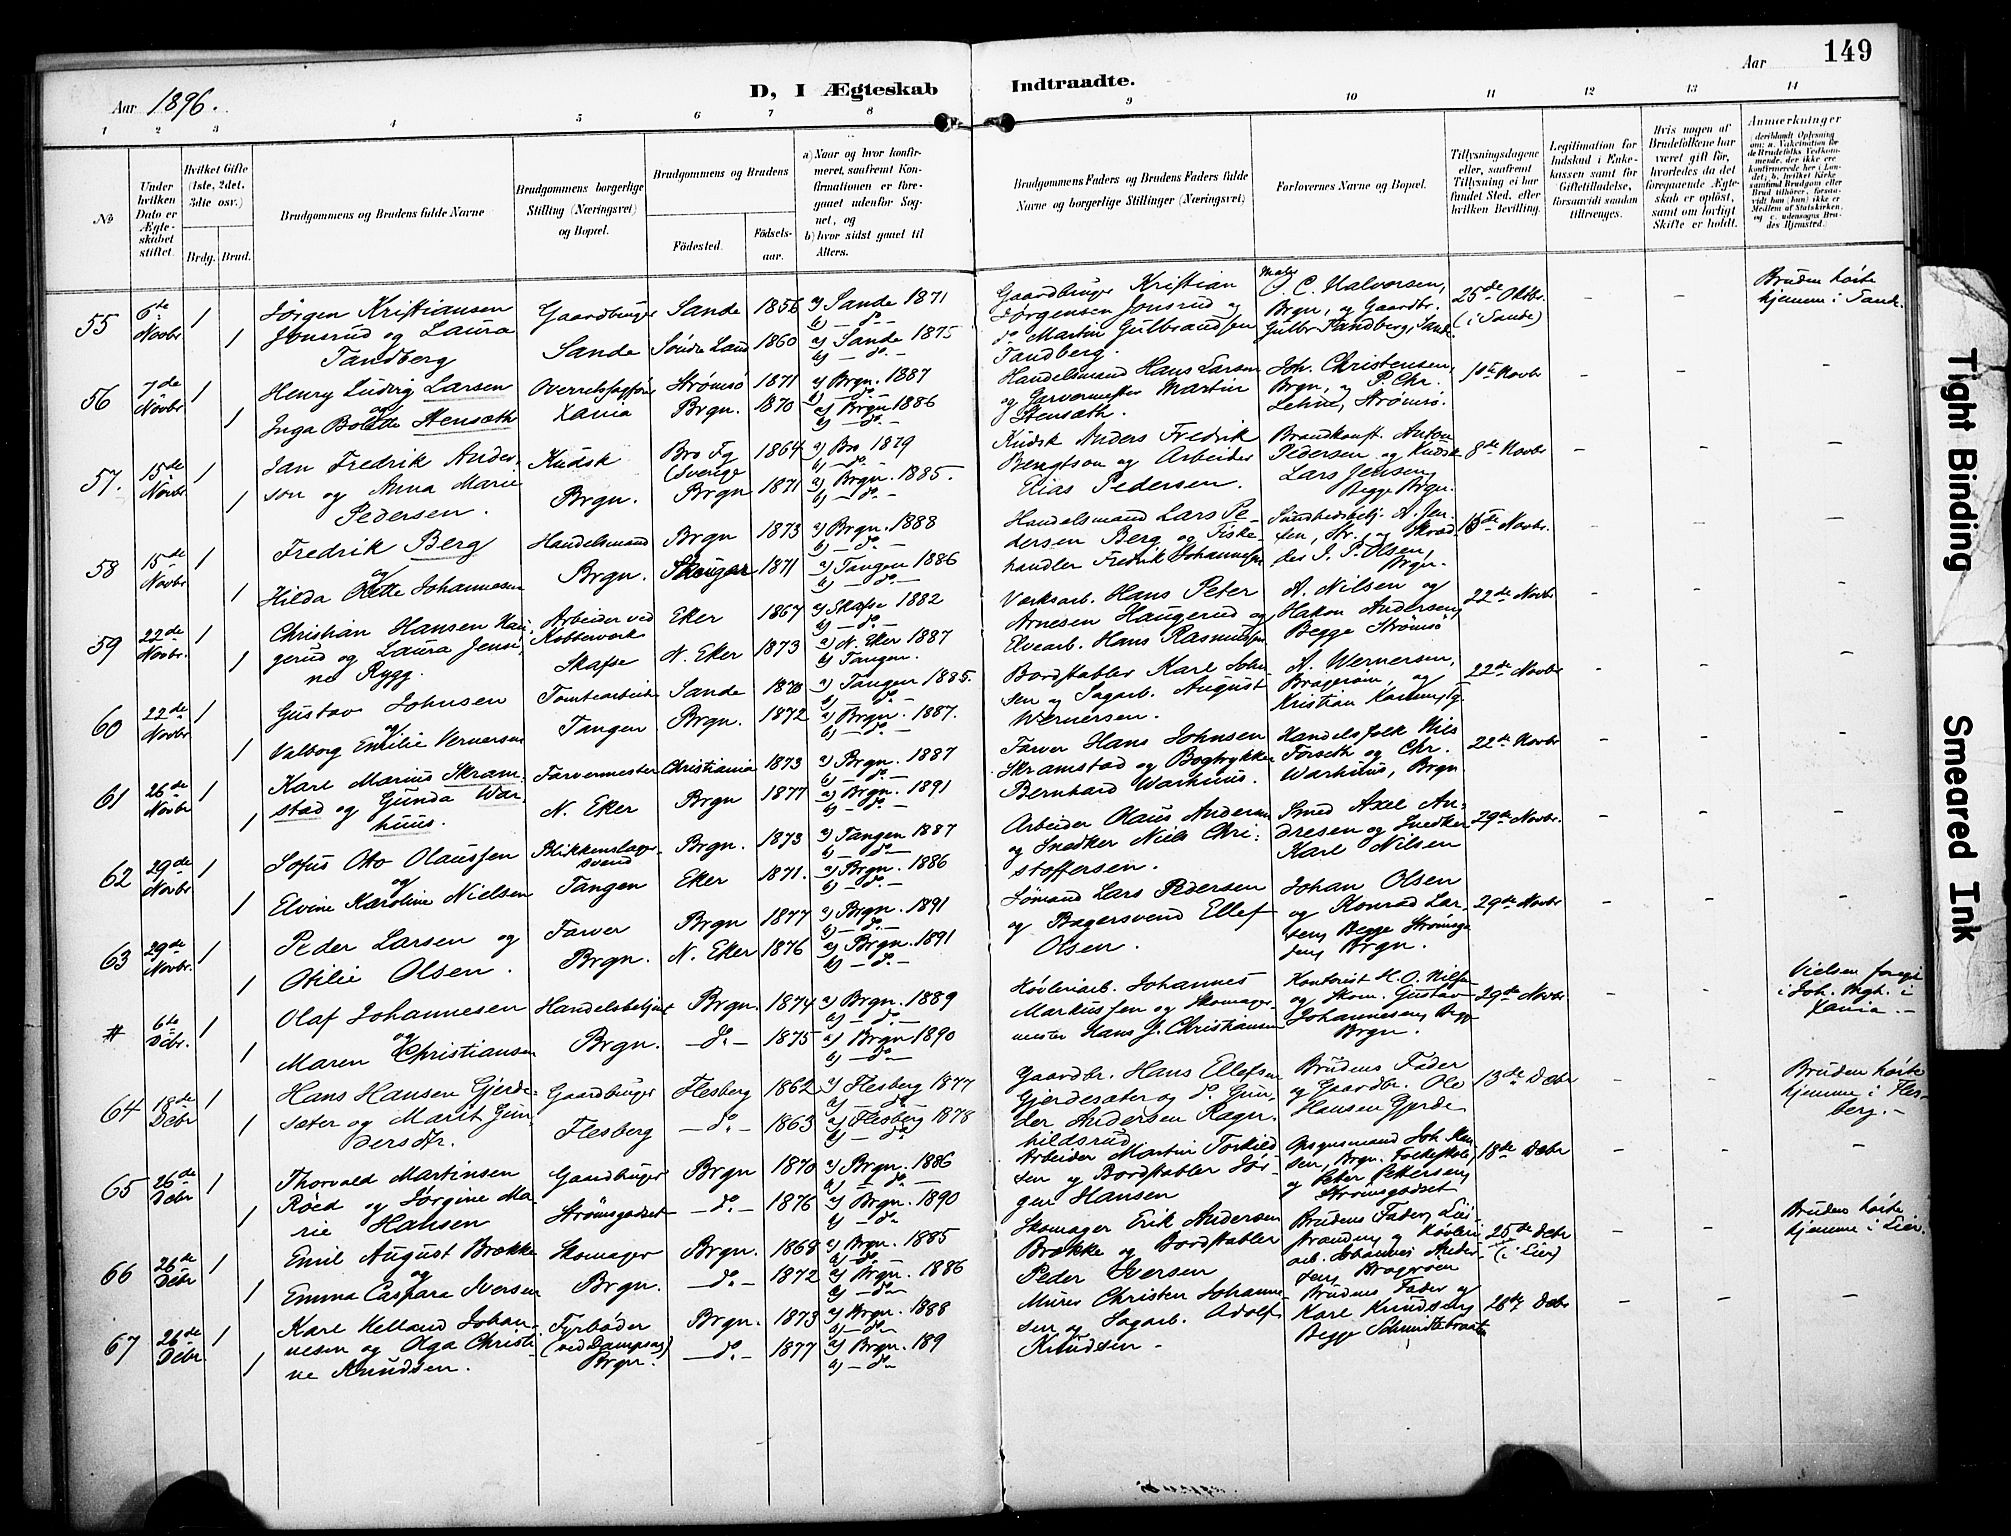 149
Aar 1896.
D, I Ægteskab Indtraadte.
Aar
1 2 3 4 5 6 7 8 9 10 11 12 13 14
No
Under hvilken Dato er Ægteskabet stiftet.
Hvilket Gifte (1ste, 2det, 3die osv.)
Brdg. Brud.
Brudgommens og Brudens fulde Navne
Brudgommens borgerlige Stilling (Næringsvei) og Bopæl.
Brudgommens og Brudens
Födested.
Födselsaar.
a) Naar og hvor konfirmeret, saafremt Konfirmationen er foregaaet udenfor Sognet, og
b) hvor sidst gaaet til Alters.
Brudgommens Faders og Brudens Faders fulde Navne og borgerlige Stillinger (Næringsvei)
Forlovernes Navne og Bopæl.
Tillysningsdagene eller, saafremt Tillysning ei har fundet Sted, efter hvilken Bevilling.
Legitimation for Indskud i Enkekassen samt for Giftetilladelse, forsaavidt saadan tiltrænges.
Hvis nogen af Brudefolkene har været gift för, hvorledes da det foregaaende Ægteskab er oplöst, samt om lovligt Skifte er holdt.
Anmærkninger
55 6te Novbr 1 1
Jørgen Kristiansen
Jonsrud og Laura
Tandberg
Gaardbruger
Sande
Sande 1856
Søndre Land 1860
a) Sande 1871
b) – do. –
a) Sande 1875
b) – do. –
Gaardbruger Kristian
Jørgensen Jonsrud og
do Martin Gulbrandsen
Tandberg.
Maler O. C. Halvorsen,
Brgn, og Gaardbr.
Gulbr Tandberg, Sande
25de Oktbr.
(i Sande)
Bruden hørte
hjemme i Sande.
56 7de Novbr 1 1
Henry Ludvig Larsen
og
Inga Bolette Stensæth
Overretssagfører
Xania
Strømsø 1871
Brgn. 1870
a) Brgn. 1887
b) – do. –
a) Brgn 1886
b) – do. –
Handelsmand Hans Larsen
og Garvermester Martin
Stensæth.
Joh. Christensen,
Brgn, og P. Chr.
Lehne, Strømsø.
1ste Novbr
57. 15de Novbr 1 1
Jan Fredrik Ander-
son og Anna Marie
Pedersen.
Kudsk
Brgn.
Bro Fg (Sverige 1864
Brgn 1871
a) Bro 1879
b) – do. –
a) Brgn. 1885.
b) – do. –
Kudsk Anders Fredrik
Bengtson og Arbeider
Elias Pedersen.
Brandkonst. Anton
Pedersen og Kudsk
Lars Jensen,
Begge Brgn.
8de Novbr
58 15de Novbr 1 1
Fredrik Berg
og
Hilda Olette Johannesen
Handelsmand
Brgn.
Brgn 1873
Skouger 1871
a) Brgn. 1888
b) – do. –
a) Tangen 1886
b) – do. –
Handelsmand Lars Pe-
dersen Berg og Fiske-
handler Fredrik Johannesen
Sundhedsbetj. A. Jen-
sen, Str., og Skræd-
der J. P. Olsen,
Brgn.
15de Novbr.
59 22de Novbr. 1 1
Christian Hansen Hau-
gerud og Laura Jensi-
ne Rygg.
Arbeider ved
Koboltværk
Skafse
Eker 1867
N. Eker 1873
a) Skafse 1882
b) – do. –
a) N. Eker 1887
b) Tangen.
Værksarb. Hans Peter
Arnesen Haugerud og
Elvearb. Hans Rasmussen
A. Nilsen og
Hakon Andersen,
Begge Strømsø
22de Novbr
60 22de Novbr 1 1
Gustav Johnsen
og
Valborg Emilie Wernersen
Tomtearbeider
Tangen
Sande 1870
Brgn. 1872
a) Tangen 1885.
b) – do. –
a) Brgn. 1887.
b) – do. –
Bordstabler Karl John-
sen og Sagarb. August
Wernersen.
A. Wernersen,
Bragerøen, og
22de Novbr
61 26de Novbr 1 1
Karl Marius Skram-
stad og Gunda War-
huus.
Farvermester
N. Eker
Christiania 1873
Brgn 1877
a) Brgn. 1887
b) – do. –
a) Brgn. 1891
b) – do. –
Farver Hans Johnsen
Skramstad og Bogtrykker
Bernhard Warhuus.
Handelsfolk Nils
Forseth og Chr.
Warhuus, Brgn
22de Novbr
62 29de Novbr 1 1
Sofus Oto Olaussen
og
Elvine Karoline Nielsen
Blikkenslager-
svend
Tangen
Brgn. 1873
Eker 1871.
a) Tangen 1887
b) – do. –
a) Brgn. 1886
b) – do. –
Arbeider Olaus Andersen
og Snedker Niels Chri-
stoffersen.
Smed Axel An-
dresen og Snedker
Karl Nilsen
29de Novbr.
63 29de Novbr. 1 1
Peder Larsen og
Otilie Olsen.
Farver
Brgn.
Brgn 1877
N. Eker 1876
a) Brgn. 1891
b) – do. –
a) Brgn. 1891
b) – do. –
Sømand Lars Pedersen
og Bagersvend Ellef
Olsen.
Johan Olsen
og Konrad Lar-
sen, Begge
Brgn.
29de Novbr
# 6te Debr. 1 1
Olaf Johannesen
og
Maren Christiansen
Handelsbetjent
Brgn.
Brgn. 1874
– do. – 1875
a) Brgn. 1889
b) – do. –
a) Brgn 1890
b) – do. –
Høvleriarb. Johannes
Markussen og Skomager-
mester Hans J. Christiansen
Kontorist H. O. Nilsen
og Skom. Gustav
Johannesen, Begge
Brgn.
29de Novbr
Vielsen foregik
i Joh. Mgh. i
Xania. –
64 18de Debr 1 1
Hans Hansen Gjerde-
sæter og Marit Gun-
dersdtr.
Gaardbruger
Flesberg
Flesberg 1862
– do. – 1863
a) Flesberg 1877
b) – do.
a) Flesberg 1878
b) – do.
Gaardbr. Hans Ellefsen
Gjerdesæter og do. Gun-
der Andersen Ragn-
hildsrud
Brudens Fader
og Gaardbr. Ole
Hansen Gjerde
13de Debr
Bruden hørte
hjemme i Fles-
berg. –
65 26de Debr 1 1
Thorvald Martinsen
Røed og Jørgine Ma-
rie Hansen
Gaardbruger
Strømsgodset
Brgn 1870
– do. – 1876
a) Brgn. 1886
b) – do. –
a) Brgn. 1890
b) – do.
Arbeider Martin Torkild-
sen og Bordstabler Jør-
gen Hansen
Opsynsmand Joh. Han-
sen, Brgn.
og Peter Pettersen,
Strømsgodset
18de Debr
66 26de Debr 1 1
Emil August Brække
og
Emma Caspara Iversen
Skomager
Brgn.
Brgn. 1868
– do. – 1872
a) Brgn. 1885
b) – do. –
a) Brgn. 1886
b) – do. –
Skomager Erik Andersen
Brække og Bordstabler
Peder Iversen
Brudens Fader, Lei-
stranden, og Høvleri-
arb. Johannes Ander-
sen, Bragerøen
25de Debr
(i Lier)
Bruden hørte
hjemme i Lier.
67 26de Debr. 1 1
Karl Helland Johan-
nesen og Olga Christi-
ne Knudsen.
Fyrbøder
(ved Dampsag)
Brgn.
Brgn. 1873
– do. – 1877
a) Brgn. 1888
b) – do. –
a) Brgn. 189
b) – do. –
Murer Christen Johanne-
sen og Sagarb. Adolf
Knudsen –
Brudens Fader og
Karl Knudsen,
Begge Schmidtebraaten
20de Debr
Tight Binding
Smeared Ink